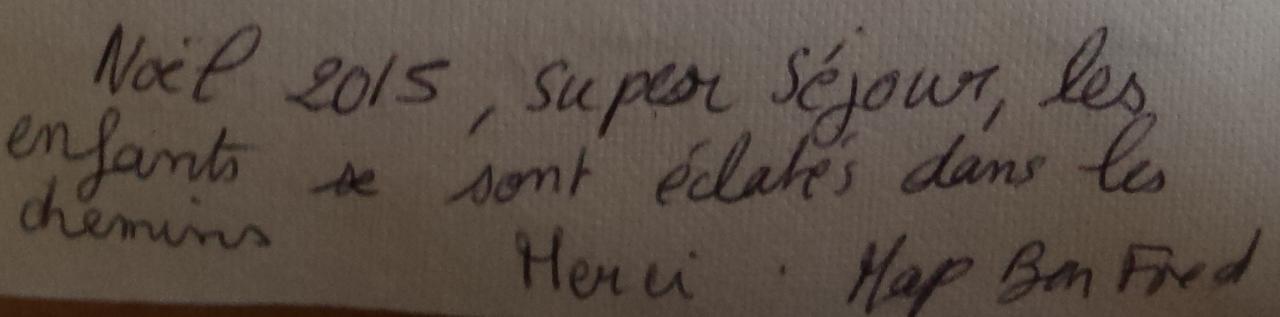 Noël 2015, super séjour, les
enfants se sont éclatés dans les
chemins
Merci. Map Ben Fred